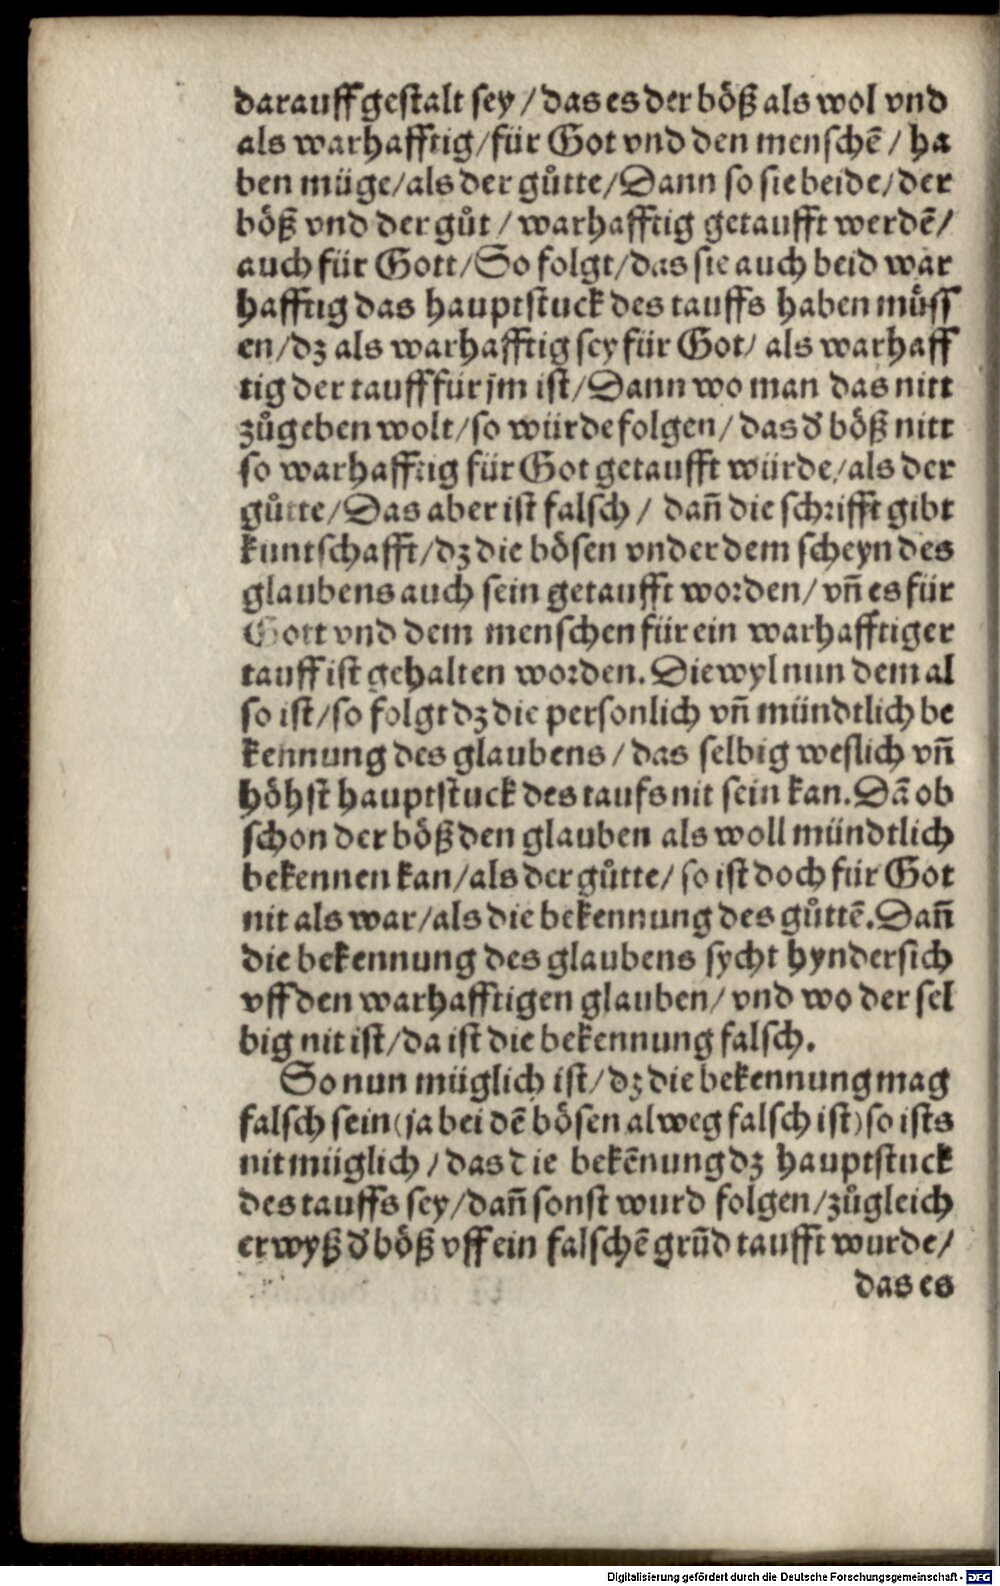 darauff gestalt sey / das es der böß als wol vnd
als warhafftig / für Got vnd den menschē / ha
ben müge / als der gůtte / Dann so sie beide / der
böß vnd der gůt / warhafftig getaufft werdē /
auch für Gott / So folgt / das sie auch beid war
hafftig das hauptstuck des tauffs haben müss
en / dz als warhafftig sey für Got / als warhaff
tig der tauff für jm ist / Dann wo man das nitt
zůgeben wolt / so würde folgen / das d' böß nitt
so warhafftig für Got getaufft würde / als der
gůtte / Das aber ist falsch / dañ die schrifft gibt
kuntschafft / dz die bösen vnder dem scheyn des
glaubens auch sein getaufft worden / vñ es für
Gott vnd dem menschen für ein warhafftiger
tauff ist gehalten worden. Die wyl nun dem al
so ist / so folgt dz die personlich vñ mündtlich be
kennung des glaubens / das selbig weslich vñ
höhst hauptstuck des taufs nit sein kan. Dā ob
schon der böß den glauben als woll mündtlich
bekennen kan / als der gůtte / so ist doch für Got
nit als war / als die bekennung des gůttē. Dañ
die bekennung des glaubens sycht hyndersich
vff den warhafftigen glauben / vnd wo der sel
big nit ist / da ist die bekennung falsch.
So nun müglich ist / dz die bekennung mag
falsch sein (ja bei dē bösen alweg falsch ist) so ists
nit müglich / das die bekēnung dz hauptstuck
des tauffs sey / dañ sonst wurd folgen / zůgleich
er wyß d' böß vff ein falschē grūd taufft wurde /
das es
Digitalisierung gefördert durch die Deutsche Forschungsgemeinschaft - DFG